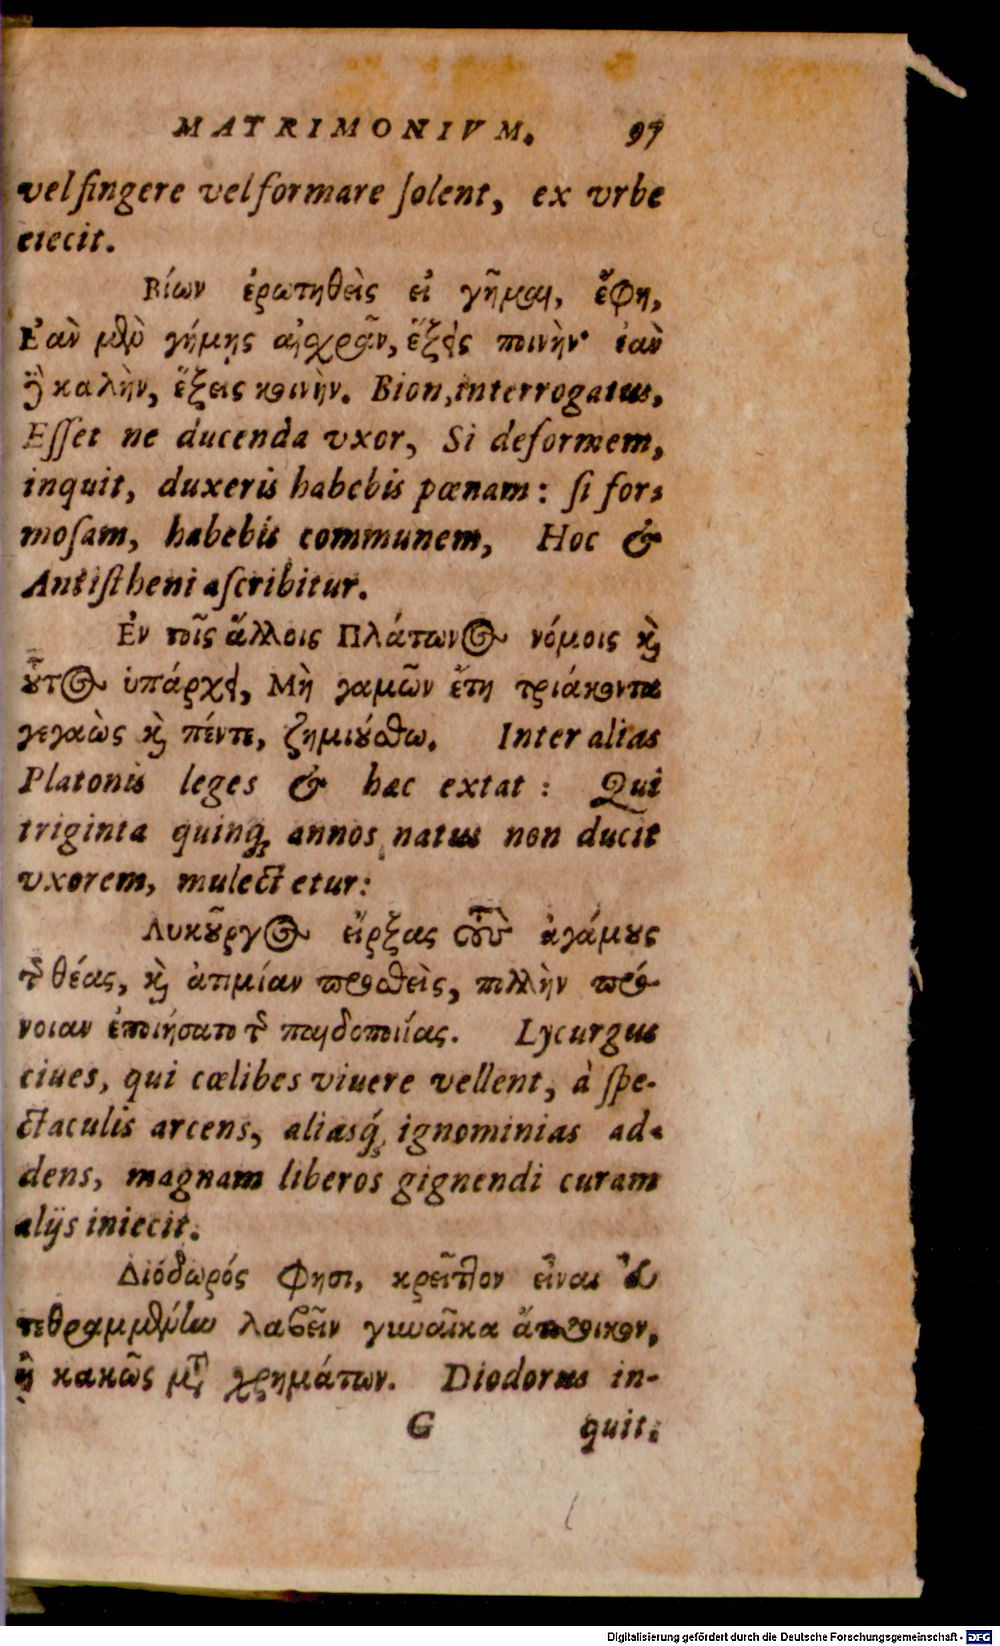 MATRIMONIVM. 97
vel fingere vel formare ſolent, ex vrbe
eiecit.
Βίων ἐρωτηθεὶς εἰ γῆμαι, ἔφη,
Ἐὰν μὲν γήμῃς αἰχρὰν, ἕξεις ποινὴν· ἐὰν
δὲ καλὴν, ἕξεις κοινὴν. Bion, interrogatus,
Eſſet ne ducenda vxor, Si deformem,
inquit, duxeris habebis pœnam: ſi for-
moſam, habebis communem, Hoc &
Antiſtheni aſcribitur.
Ἐν τοῖς ἄλλοις Πλάτωνος νόμοις καὶ
οὗτος ὑπάρχει, Μὴ γαμῶν ἔτη τριάκοντα
γεγαὼς καὶ πέντε, ζημιούσθω. Inter alias
Platonis leges & hac extat: Qui
triginta quinq; annos natus non ducit
vxorem, mulectetur:
Λυκοῦργος εἴρξας τοὺς ἀγάμους
τῆς θέας, καὶ ἀτιμίαν προσθεὶς, πολλὴν πρό-
νοιαν ἐποιήσατο τῆς παιδοποιίας. Lycurgus
ciues, qui cœlibes viuere vellent, à ſpe-
ctaculis arcens, aliasq́; ignominias ad-
dens, magnam liberos gignendi curam
alijs iniecit.
Διόδωρός φησι, κρεῖττον εἶναι εὖ
τεθραμμένην λαβεῖν γυναῖκα ἄποικον,
ἢ κακῶς μετὰ χρημάτων. Diodorus in-
G quit:
Digitalisierung gefördert durch die Deutsche Forschungsgemeinschaft - DFG